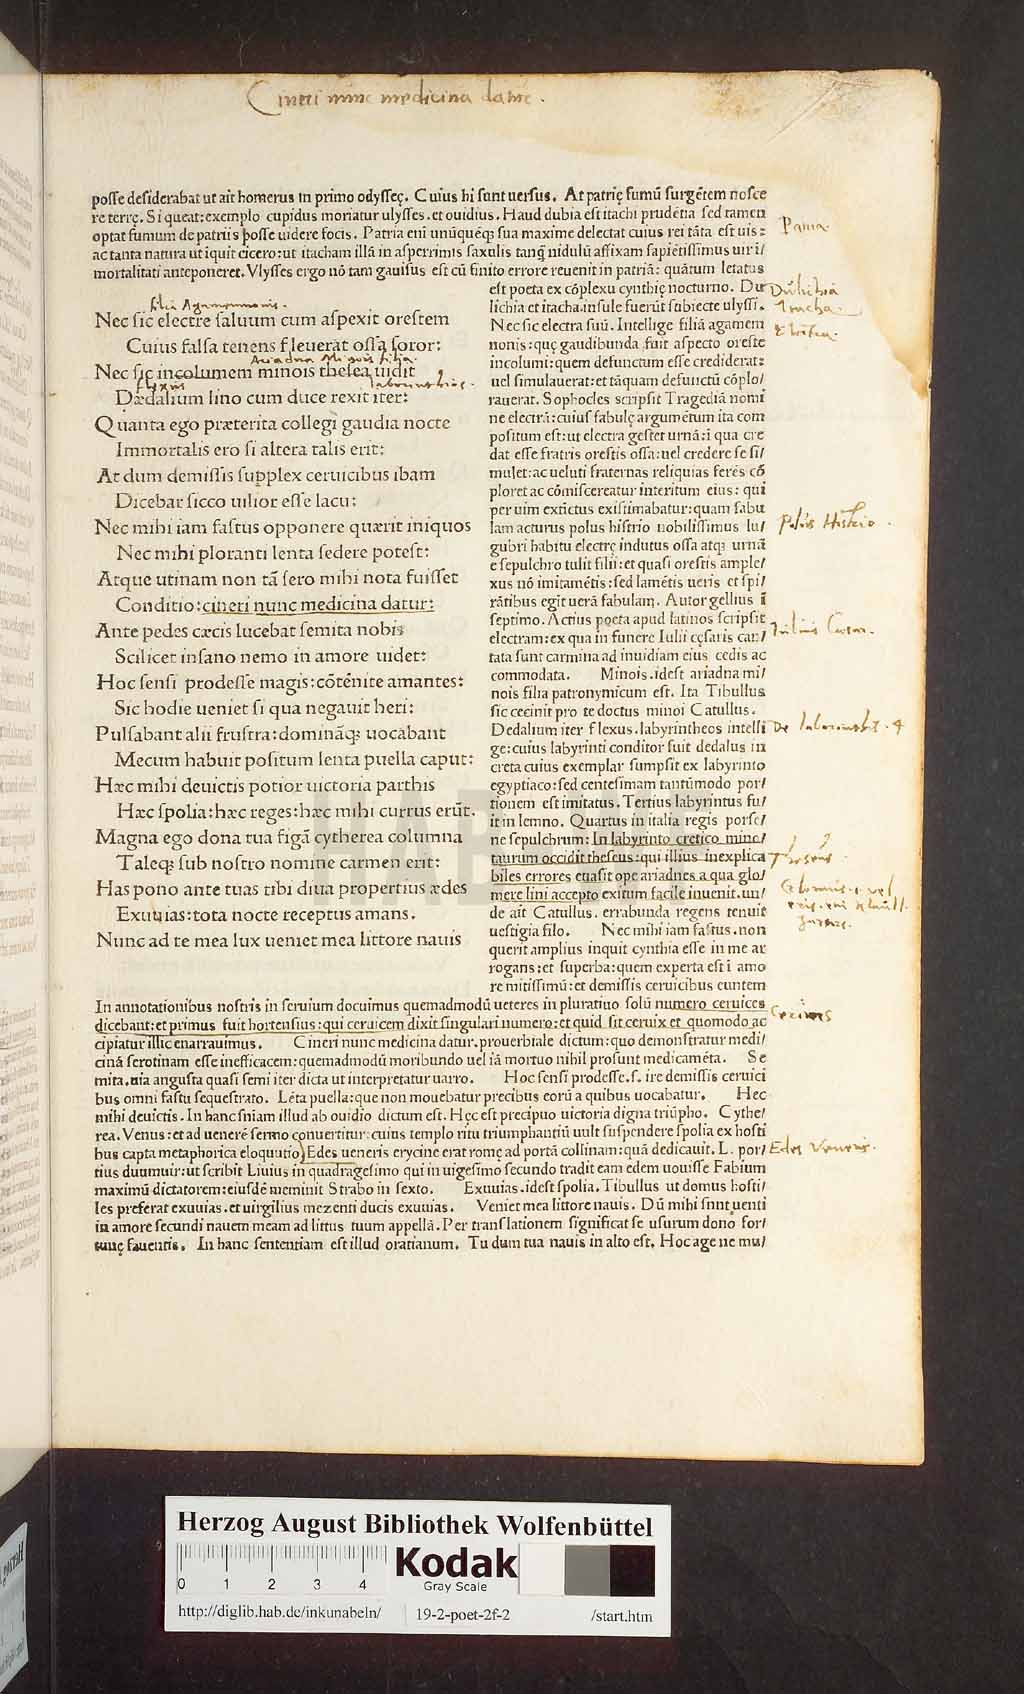 Cineri nunc medicina datur.
posse desiderabat ut ait homerus in primo odysseę. Cuius hi sunt uersus. At patrię fumū surgētem nosce
re terrę. Si queat: exemplo cupidus moriatur ulysses. et ouidius. Haud dubia est itachi prudētia sed tamen
optat fumum de patriis posse uidere focis. Patria eni unūquēqꝫ sua maxime delectat cuius rei tāta est uis:
ac tanta natura ut iquit cicero: ut itacham illā in asperrimis saxulis tanqꝫ nidulū affixam sapiētissimus uir i/
mortalitati anteponeret. Vlysses ergo nō tam gauisus est cū finito errore reuenit in patriā: quātum letatus
Patria.
filia Agamemnonis.
Nec sic electre saluum cum aspexit orestem
Cuius falsa tenens fleuerat ossa soror:
Ariadna Minois filia.
Nec sic incolumem minois thesea uidit
flexus
Dædalium lino cum duce rexit iter:
Quanta ego præterita collegi gaudia nocte
Immortalis ero si altera talis erit:
At dum demissis supplex ceruicibus ibam
Dicebar sicco uilior esse lacu:
Nec mihi iam fastus opponere quærit iniquos
Nec mihi ploranti lenta sedere potest:
Atque utinam non tā sero mihi nota fuisset
Conditio: cineri nunc medicina datur:
Ante pedes cæcis lucebat semita nobis
Scilicet insano nemo in amore uidet:
Hoc sensi prodesse magis: cōtēnite amantes:
Sic hodie ueniet si qua negauit heri:
Pulsabant alii frustra: domināqꝫ uocabant
Mecum habuit positum lenta puella caput:
Hæc mihi deuictis potior uictoria parthis
Hæc spolia: hæc reges: hæc mihi currus erūt.
Magna ego dona tua figā cytherea columna
Taleqꝫ sub nostro nomine carmen erit:
Has pono ante tuas tibi diua propertius ædes
Exuuias: tota nocte receptus amans.
Nunc ad te mea lux ueniet mea littore nauis
est poeta ex cōplexu cynthię nocturno. Du
lichia et itacha insule fuerūt subiecte ulyssi.
Nec sic electra suū. Intellige filiā agamem
nonis: quę gaudibunda fuit aspecto oreste
incolumi: quem defunctum esse crediderat:
uel simulauerat: et tāquam defunctū cōplo/
rauerat. Sophocles scripsit Tragediā nomi
ne electrā: cuius fabulę argumētum ita com
positum est: ut electra gestet urnā: i qua cre
dat esse fratris orestis ossa: uel credere se si/
mulet: ac ueluti fraternas reliquias ferēs cō
ploret ac cōmiscereatur interitum eius: qui
per uim extictus existimabatur: quam fabu
lam acturus polus histrio nobilissimus lu/
gubri habitu electrę indutus ossa atqꝫ urnā
e sepulchro tulit filii: et quasi orestis ample/
xus nō imitamētis: sed lamētis ueris et spi/
rātibus egit uerā fabulam. Autor gellius ī
septimo. Actius poeta apud latinos scripsit
electram: ex qua in funere Iulii cęsaris can/
tata sunt carmina ad inuidiam eius cedis ac
commodata. Minois. idest ariadna mi/
nois filia patronymicum est. Ita Tibullus
sic cecinit pro te doctus minoi Catullus.
Dedalium iter flexus. labyrintheos intelli
ge: cuius labyrinti conditor fuit dedalus in
creta cuius exemplar sumpsit ex labyrinto
egyptiaco: sed centesimam tantūmodo por/
tionem est imitatus. Tertius labyrintus fu/
it in lemno. Quartus in italia regis porse/
ne sepulchrum: In labyrinto cretico mino/
taurum occidit theseus: qui illius inexplica
biles errores euasit ope ariadnes a qua glo/
mere lini accepto exitum facile inuenit. un/
de ait Catullus. errabunda regens tenuit
uestigia filo. Nec mihi iam fastus. non
querit amplius inquit cynthia esse in me ar
rogans: et superba: quem experta est ī amo
re mitissimū: et demissis ceruicibus euntem
Dulichia
Itacha.
Polus Histrio.
Iulius Caesar.
De labirinthis. 4
Theseus
Ceruices
In annotationibus nostris in seruium docuimus quemadmodū ueteres in pluratiuo solū numero ceruices
dicebant: et primus fuit hortensius: qui ceruicem dixit singulari numero: et quid sit ceruix et quomodo ac
cipiatur illic enarrauimus. Cineri nunc medicina datur. prouerbiale dictum: quo demonstratur medi/
cinā serotinam esse inefficacem: quemadmodū moribundo uel iā mortuo nihil prosunt medicamēta. Se
mita. uia angusta quasi semi iter dicta ut interpretatur uarro. Hoc sensi prodesse. s. ire demissis ceruici
bus omni fastu sequestrato. Lēta puella: que non mouebatur precibus eorū a quibus uocabatur. Hec
mihi deuictis. In hanc sniam illud ab ouidio dictum est. Hęc est precipuo uictoria digna triūpho. Cythe/
rea. Venus: et ad uenerē sermo conuertitur: cuius templo ritu triumphantiū uult suspendere spolia ex hosti
bus capta metaphorica eloquutio) Edes ueneris erycine erat romę ad portā collinam: quā dedicauit. L. por/
tius duumuir: ut scribit Liuius in quadragesimo qui in uigesimo secundo tradit eam edem uouisse Fabium
maximū dictatorem: eiusdē meminit Strabo in sexto. Exuuias. idest spolia. Tibullus ut domus hosti/
les preferat exuuias. et uirgilius mezenti ducis exuuias. Veniet mea littore nauis. Dū mihi sunt uenti
in amore secundi nauem meam ad littus tuum appellā. Per translationem significat se usurum dono for/
tunę fauentis. In hanc sententiam est illud oratianum. Tu dum tua nauis in alto est. Hoc age ne mu/
Edes Veneris.
HAB
Herzog August Bibliothek Wolfenbüttel
0 1 2 3 4
Kodak
Gray Scale
http://diglib.hab.de/inkunabeln/ 19-2-poet-2f-2 /start.htm